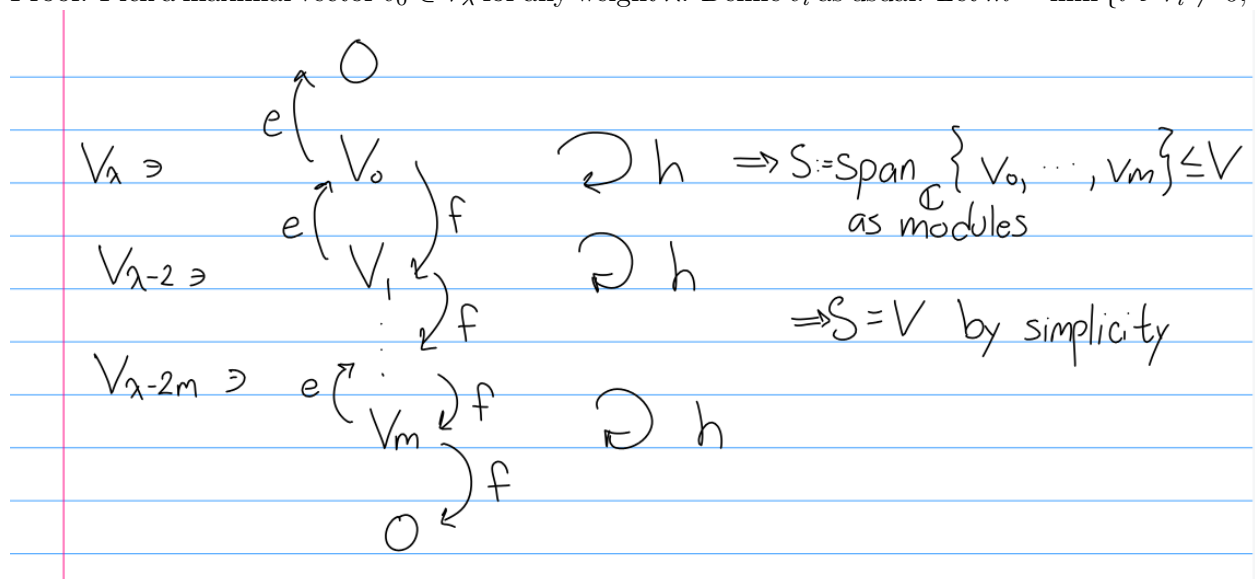 0
e
V_λ ∋ V_0 h ⇒ S:=span_ℂ {V_0, ⋯, V_m} ≤ V
as modules
e f
V_{λ-2} ∋ V_1 h
f ⇒ S = V by simplicity
⋮
V_{λ-2m} ∋ e f
V_m h
f
0